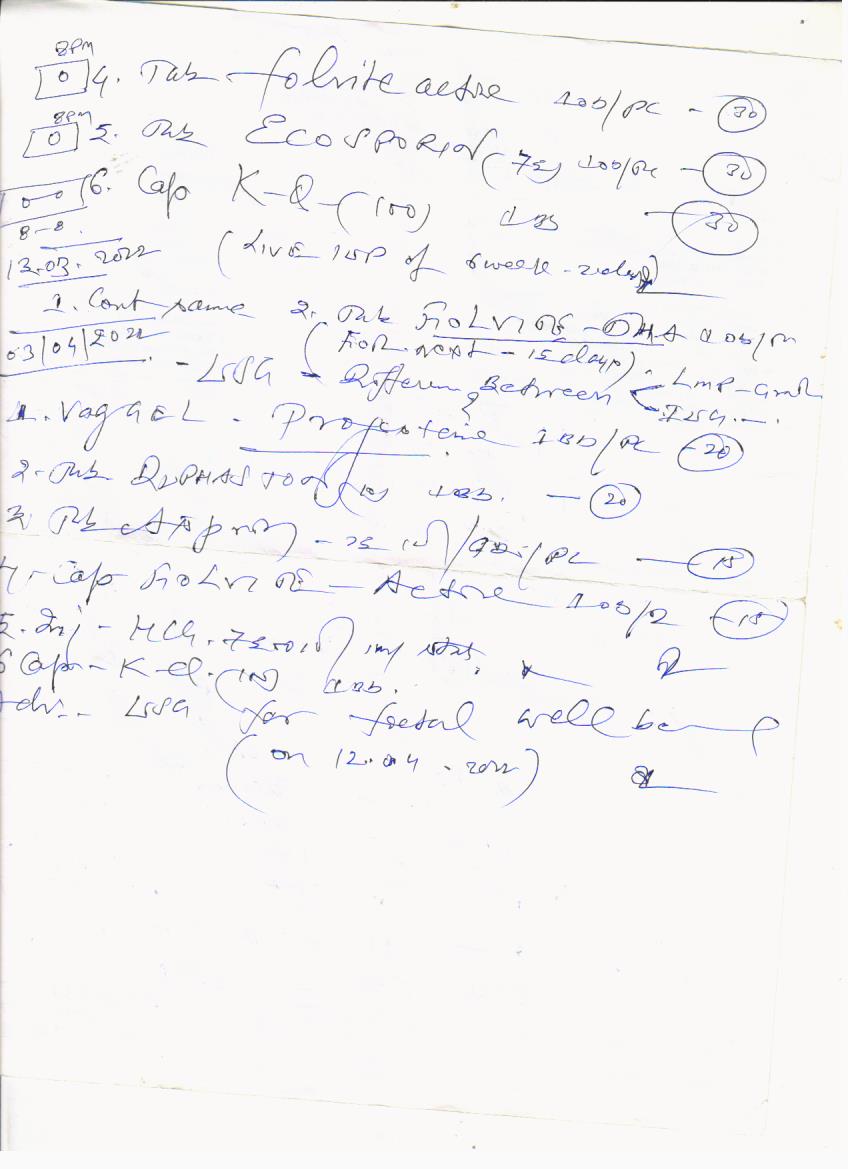 8PM
0 4. Tab Folvite active 1OD/PC - 30
8PM
0 5. Tab ECOSPORIN (75) 1OD/PC - 30
6. Cap K-Q-(100) 1BD - 30
8-8
13.03.2022 (LIVE IUP of 6week-2days)
1. Cont same 2. Tab FOLVITE-DHA 1OD/PC
(FOR NEXT - 15days)
03/04/2022 - USG - Differen Between LMP-Gest
& USG
1. VagGEL - Progesterone 1BD/PC - 20
2. Tab DUPHASTON (10) 1BD. - 20
3. Tab - 75 /OD/PC - 15
4. Cap FOLVITE - Active 1OD/ - 15
5. Inj - HCG. im stat.
6 Cap - K-Q. 1BD.
Adv. - USG for foetal well being
(on 12.04.2022)